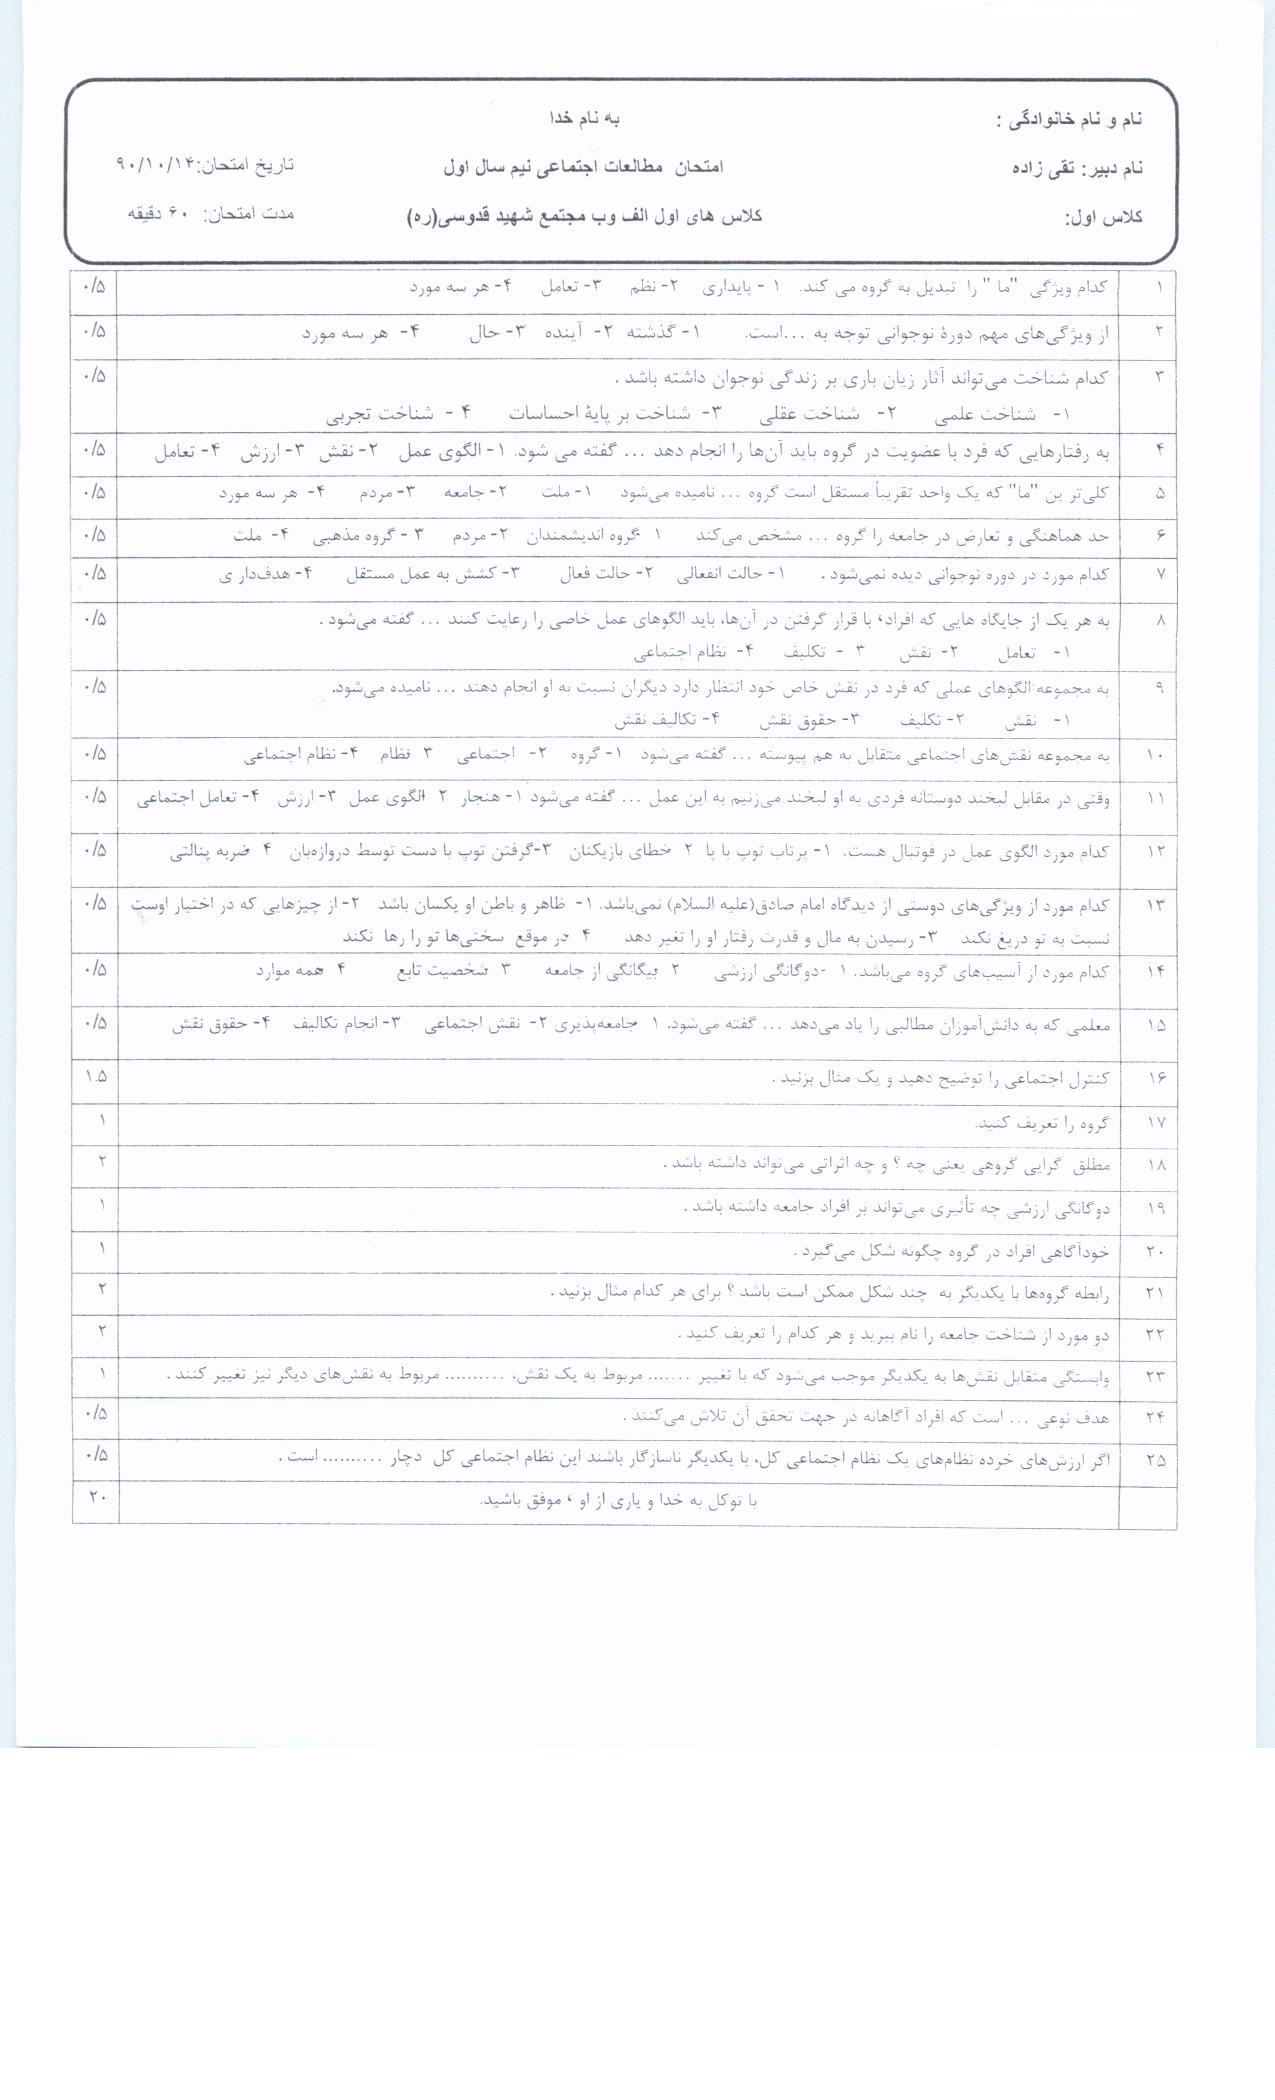 نام و نام خانوادگی :
به نام خدا
نام دبیر: تقی زاده
امتحان مطالعات اجتماعی نیم سال اول
تاریخ امتحان:۹۰/۱۰/۱۴
کلاس اول:
کلاس های اول الف وب مجتمع شهید قدوسی(ره)
مدت امتحان: ۶۰ دقیقه
۱ کدام ویژگی "ما" را تبدیل به گروه می کند. ۱- پایداری ۲- نظم ۳- تعامل ۴- هر سه مورد ۰/۵
۲ از ویژگی‌های مهم دورۀ نوجوانی توجه به ...است. ۱- گذشته ۲- آینده ۳- حال ۴- هر سه مورد ۰/۵
۳ کدام شناخت می‌تواند آثار زیان باری بر زندگی نوجوان داشته باشد . ۰/۵
۱- شناخت علمی ۲- شناخت عقلی ۳- شناخت بر پایۀ احساسات ۴ - شناخت تجربی
۴ به رفتارهایی که فرد با عضویت در گروه باید آن‌ها را انجام دهد ... گفته می شود. ۱- الگوی عمل ۲- نقش ۳- ارزش ۴- تعامل ۰/۵
۵ کلی‌تر ین "ما" که یک واحد تقریباً مستقل است گروه ... نامیده می‌شود ۱- ملت ۲- جامعه ۳- مردم ۴- هر سه مورد ۰/۵
۶ حد هماهنگی و تعارض در جامعه را گروه ... مشخص می‌کند ۱ گروه اندیشمندان ۲- مردم ۳ - گروه مذهبی ۴- ملت ۰/۵
۷ کدام مورد در دوره نوجوانی دیده نمی‌شود . ۱- حالت انفعالی ۲- حالت فعال ۳- کشش به عمل مستقل ۴- هدف‌دار ی ۰/۵
۸ به هر یک از جایگاه هایی که افراد، با قرار گرفتن در آن‌ها، باید الگوهای عمل خاصی را رعایت کنند ... گفته می‌شود . ۰/۵
۱- تعامل ۲- نقش ۳ - تکلیف ۴- نظام اجتماعی
۹ به مجموعه الگوهای عملی که فرد در نقش خاص خود انتظار دارد دیگران نسبت به او انجام دهند ... نامیده می‌شود. ۰/۵
۱- نقش ۲- تکلیف ۳- حقوق نقش ۴- تکالیف نقش
۱۰ به مجموعه نقش‌های اجتماعی متقابل به هم پیوسته ... گفته می‌شود ۱- گروه ۲- اجتماعی ۳ نظام ۴- نظام اجتماعی ۰/۵
۱۱ وقتی در مقابل لبخند دوستانه فردی به او لبخند می‌زنیم به این عمل ... گفته می‌شود ۱- هنجار ۲ الگوی عمل ۳- ارزش ۴- تعامل اجتماعی ۰/۵
۱۲ کدام مورد الگوی عمل در فوتبال هست. ۱- پرتاب توپ با پا ۲ خطای بازیکنان ۳-گرفتن توپ با دست توسط دروازه‌بان ۴ ضربه پنالتی ۰/۵
۱۳ کدام مورد از ویژگی‌های دوستی از دیدگاه امام صادق(علیه السلام) نمی‌باشد. ۱- ظاهر و باطن او یکسان باشد ۲- از چیزهایی که در اختیار اوست ۰/۵
نسبت به تو دریغ نکند ۳- رسیدن به مال و قدرت رفتار او را تغیر دهد ۴ در موقع سختی‌ها تو را رها نکند
۱۴ کدام مورد از آسیب‌های گروه می‌باشد. ۱ -دوگانگی ارزشی ۲ بیگانگی از جامعه ۳ شخصیت تابع ۴ همه موارد ۰/۵
۱۵ معلمی که به دانش‌آموزان مطالبی را یاد می‌دهد ... گفته می‌شود. ۱ جامعه‌پذیری ۲- نقش اجتماعی ۳- انجام تکالیف ۴- حقوق نقش ۰/۵
۱۶ کنترل اجتماعی را توضیح دهید و یک مثال بزنید . ۱.۵
۱۷ گروه را تعریف کنید. ۱
۱۸ مطلق گرایی گروهی یعنی چه ؟ و چه اثراتی می‌تواند داشته باشد . ۲
۱۹ دوگانگی ارزشی چه تأثیری می‌تواند بر افراد جامعه داشته باشد . ۱
۲۰ خودآگاهی افراد در گروه چگونه شکل می‌گیرد . ۱
۲۱ رابطه گروه‌ها با یکدیگر به چند شکل ممکن است باشد ؟ برای هر کدام مثال بزنید . ۲
۲۲ دو مورد از شناخت جامعه را نام ببرید و هر کدام را تعریف کنید . ۲
۲۳ وابستگی متقابل نقش‌ها به یکدیگر موجب می‌شود که با تغییر ....... مربوط به یک نقش، .......... مربوط به نقش‌های دیگر نیز تغییر کنند . ۱
۲۴ هدف نوعی ... است که افراد آگاهانه در جهت تحقق آن تلاش می‌کنند . ۰/۵
۲۵ اگر ارزش‌های خرده نظام‌های یک نظام اجتماعی کل، با یکدیگر ناسازگار باشند این نظام اجتماعی کل دچار .......... است . ۰/۵
با توکل به خدا و یاری از او ، موفق باشید. ۲۰